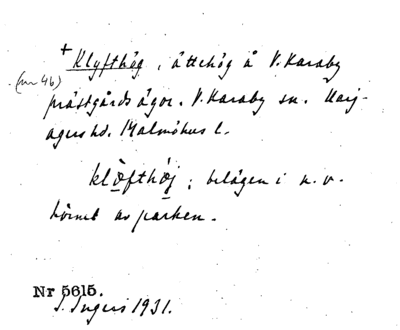 + Klyfthög, ättehög å V. Karaby
(nr 46)
prästgårds ägor. V. Karaby sn. Harj-
agers hd. Malmöhus l.
klöfthöj; belägen i n.v.
hörnet av parken.
Nr 5615.
S. Ingers 1931.